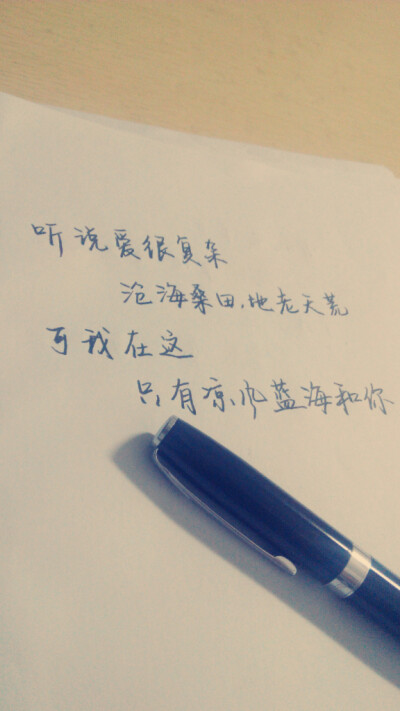 听说爱很复杂
沧海桑田,地老天荒
可我在这
只有凉风蓝海和你